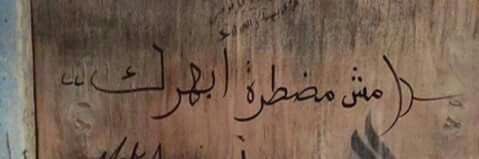 (مش مضطرة أبهرك ،،